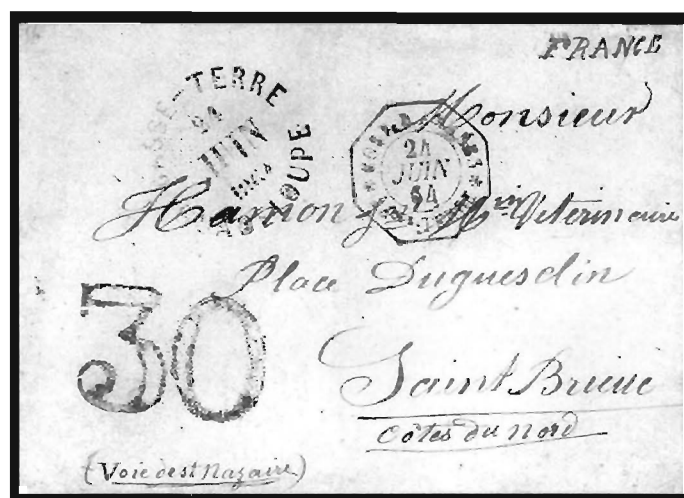 FRANCE
SSE-TERRE
24
JUIN
LOUPE
24
JUIN
Monsieur
Hamon Veterinaire
Place Duguesclin
30
Saint Brieuc
Côtes du Nord
(Voie de st Nazaire)